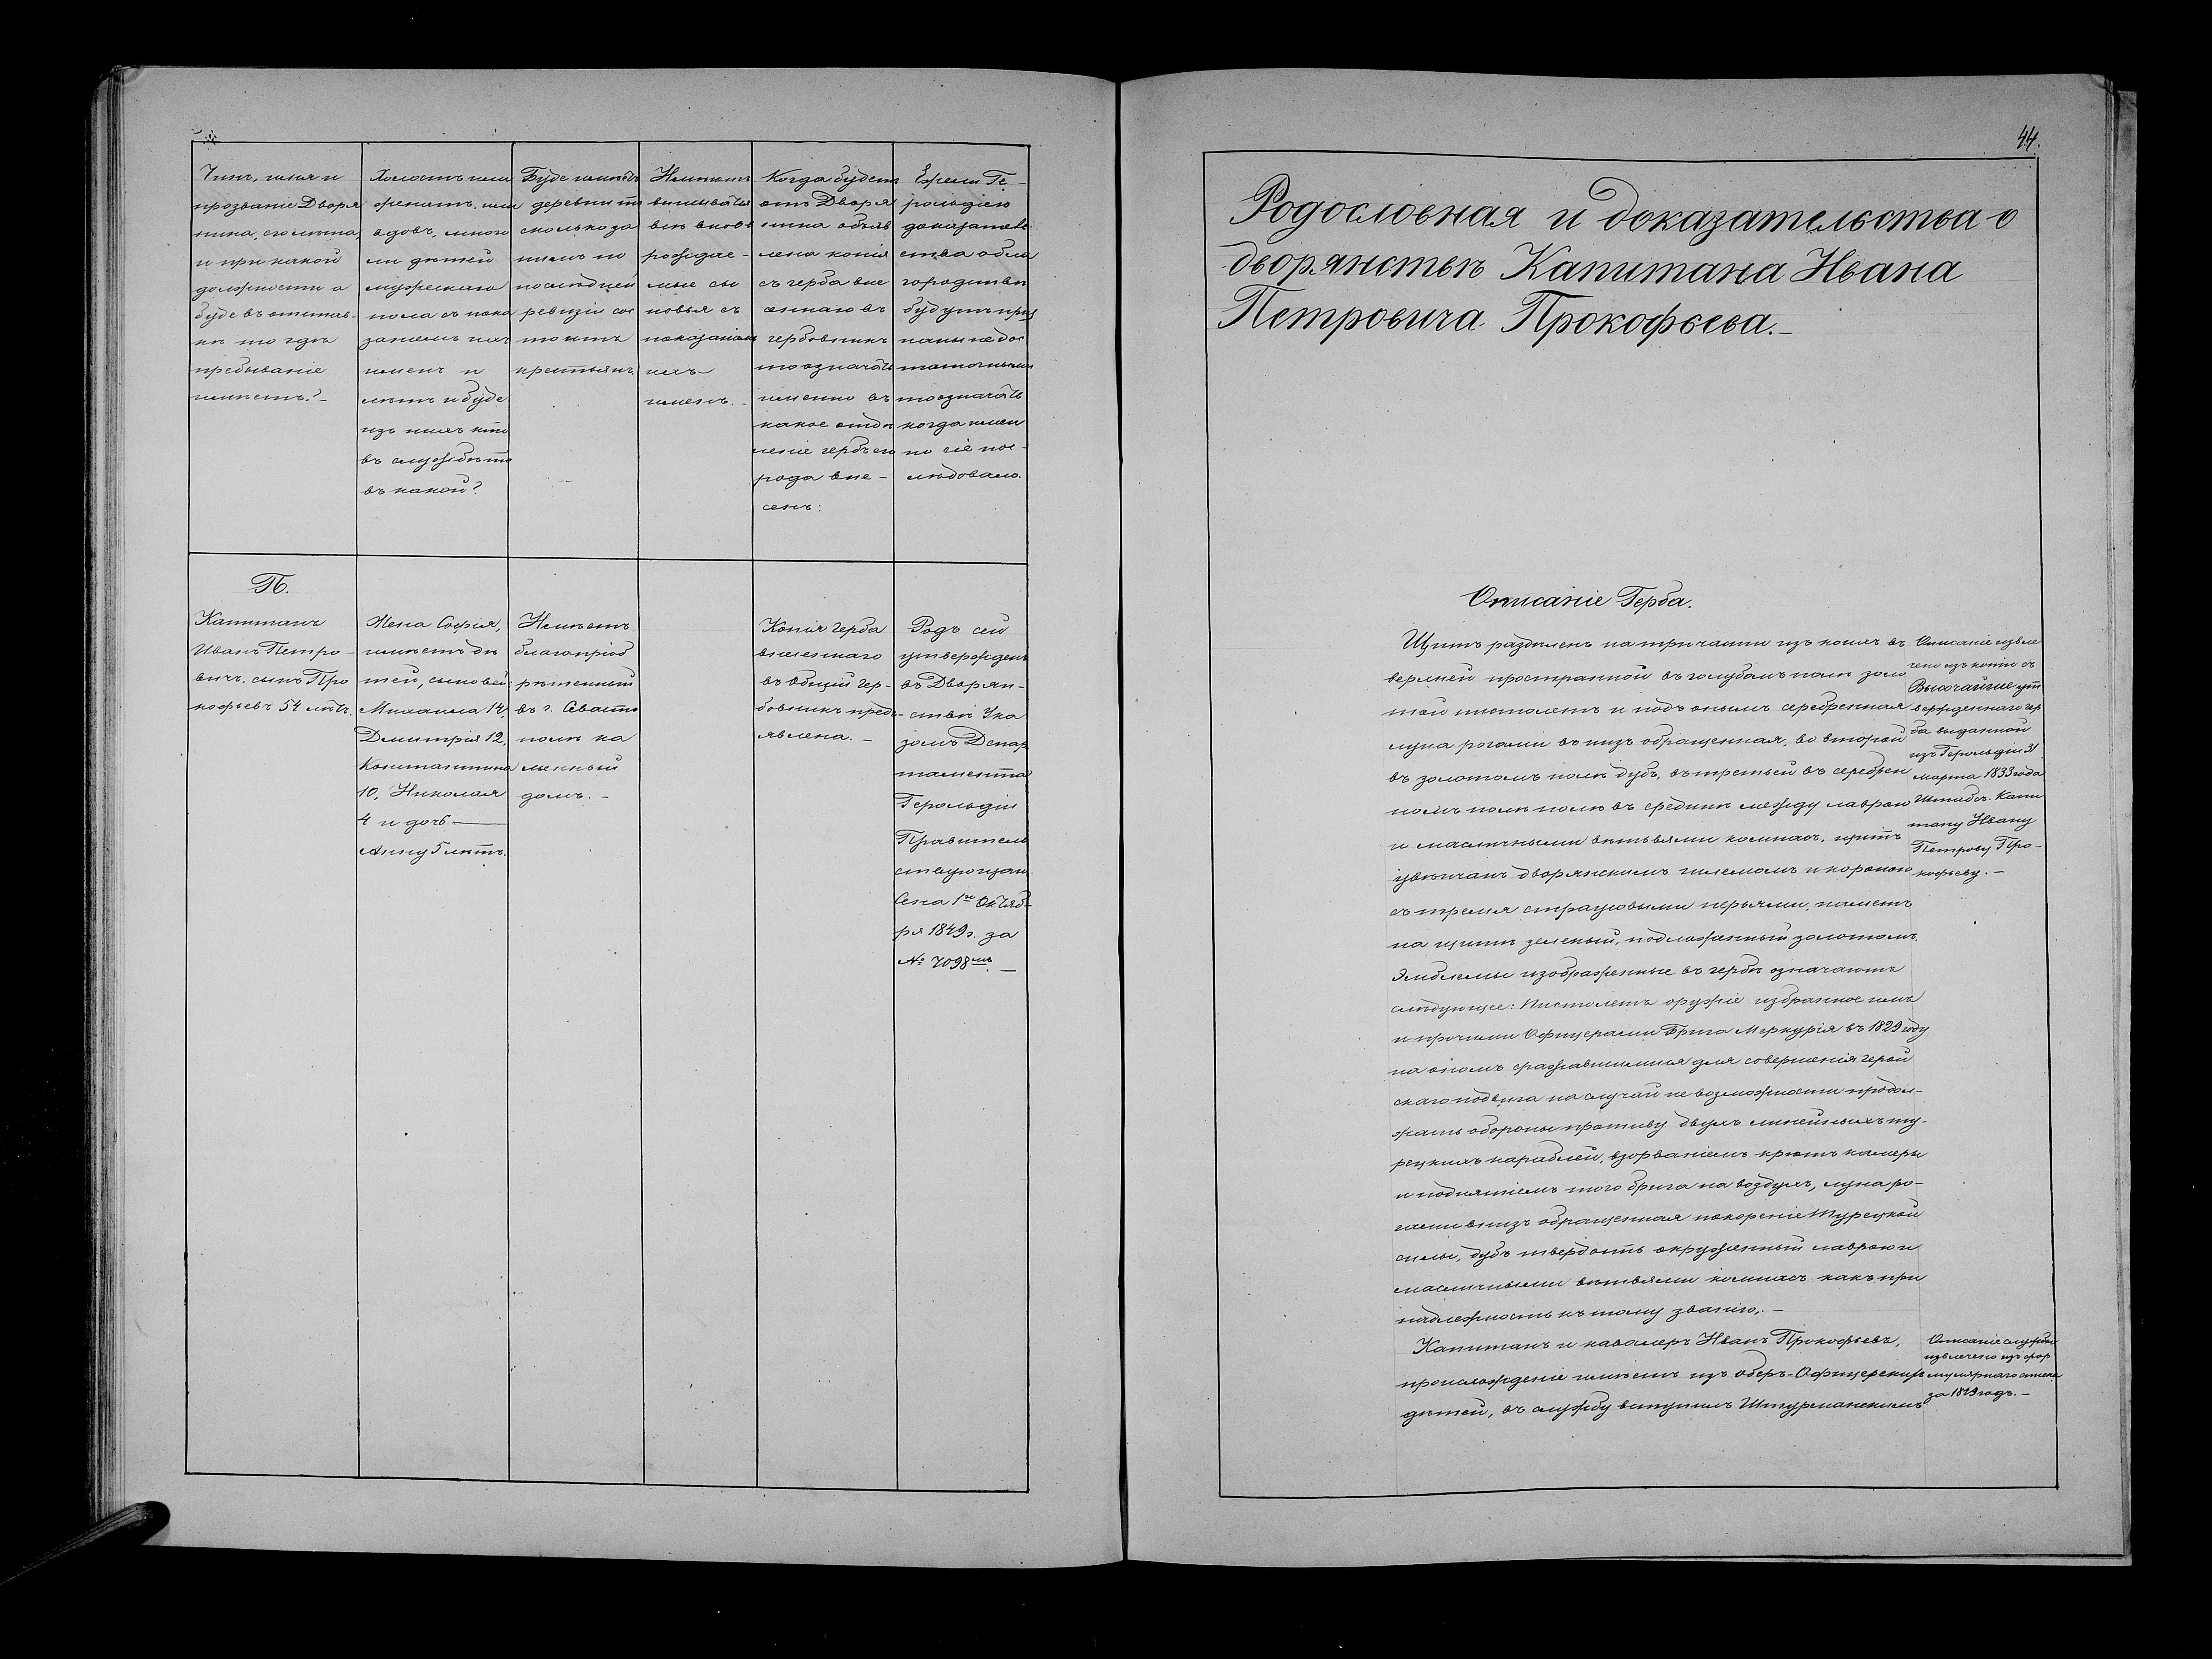 Чинъ, имя и
прозваніе Дворя
нина, его лѣта,
и при какой
должности а
буде въ отстав-
кѣ то гдѣ
пребываніе
имѣетъ?-
Холостъ или
женатъ. или
вдовъ, много
ли дѣтей
мужескаго
пола съ пока
заніемъ ихъ
именъ и
лѣтъ и буде
изъ нихъ кто
въ службѣ то
въ какой?
Буде имѣетъ
деревни то
сколько за
нимъ по
послѣдней
ревизіи сос
тоитъ
крестьянъ.
вписывать
вновь
рождае-
мые сы
новья съ
показаніемъ
ихъ
именъ.-
Когда будетъ
отъ Дворя
нина объяв
лена копія
съ герба вне
сеннаго въ
гербовникъ
то означать
именно въ
какое отдѣ
леніе гербъ его
рода вне-
сенъ:
Ежели Ге-
рольдіею
доказатель
ства о бла
городствѣ
будутъ приз
наны не дос
таточными
то означать
когда имен
но сіе пос-
лѣдовало.
П.
Капитанъ
Иванъ Петро-
вичъ сынъ Про
кофьевъ 54 лѣтъ.
Жена Софія,
имѣетъ дѣ
тей, сыновей:
Михаила 14,
Дмитрія 12,
Константина
10, Николая
4 и дочь
Анну 5 лѣтъ.
Имѣетъ
благопріоб
рѣтенный
въ г. Севасто
полѣ ка
менный
домъ.-
Копія герба
внесеннаго
въ Общій Гер-
бовникъ предъ-
явлена.-
Родъ сей
утвержденъ
въ Дворян-
ствѣ Ука
зомъ Депар
тамента
Герольдіи
Правитель
ствующаго
Сена 1го Октяб-
ря 1849 г. за
№ 7098мъ.-
44.
Родословная и доказательства о
дворянствѣ Капитана Ивана
Петровича Прокофьева.-
Описаніе Герба.
Щитъ раздѣленъ на три части изъ коихъ въ
верхней пространной въ голубомъ полѣ золо
той пистолетъ и подъ онымъ серебренная
луна рогами въ низъ обращенная, во второй
въ золотомъ полѣ дубъ, въ третьей въ серебрен
номъ полѣ въ срединѣ между лавров
и масличными вѣтвями компасъ. щитъ
увѣнчанъ дворянскимъ шлемомъ и короною
съ тремя страусовыми перьями, наметъ
на щитѣ зеленый, подложенный золотомъ.
Эмблемы изображенные въ гербѣ означаютъ
слѣдующее: Пистолетъ оружіе избранное имъ
и прочими Офицерами Брига Меркурія въ 1829 году
на ономъ сражавшимися для совершенія герой
скаго подвига на случай не возможности продол-
жать обороны противу двухъ линейныхъ ту-
рецкихъ караблей, взорваніемъ крютъ камеры
и поднятіемъ того брига на воздухъ, луна ро-
гами внизъ обращенная покореніе Турецкой
силы, дубъ твердость окруженный лавров и
масличными вѣтвями компасъ какъ при
надлежность къ тому званію.-
Капитанъ и кавалеръ Иванъ Прокофьевъ,
происхожденіе имѣетъ изъ оберъ-Офицерскихъ
дѣтей, въ службу вступилъ Штурманскимъ
Описаніе извле
чено изъ копіи съ
Высочайше ут
вержденнаго гер
ба выданной
изъ Герольдіи 31
марта 1833 года
Штабсъ. Капи
тану Ивану
Петрову Про-
кофьеву.-
Описаніе службы
извлечено изъ фор
мулярнаго списка
за 1849 годъ.-